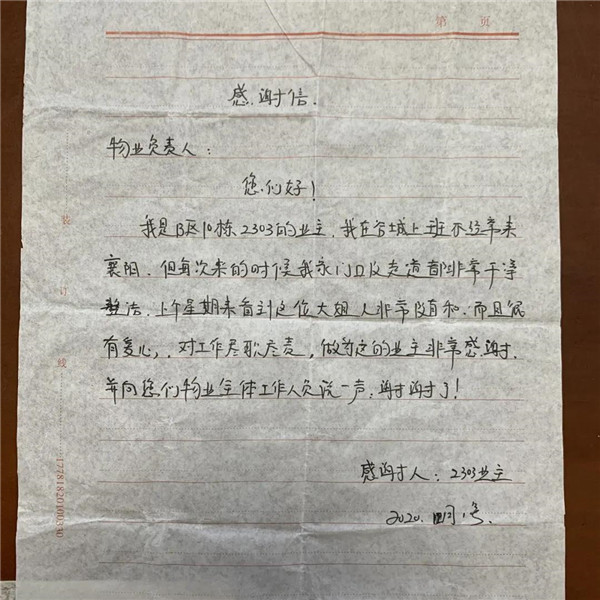 第 页
感谢信.
物业负责人：
您们好！
我是B区10栋2303的业主，我在谷城上班不经常来
襄阳，但每次来的时候我家门口及走道都非常干净
整洁，上个星期来看到这位大姐人非常随和，而且很
有爱心，对工作尽职尽责，做为这的业主非常感谢.
并向您们物业全体工作人员说一声，谢谢谢了！
感谢人：2303业主
2020.
装
订
线